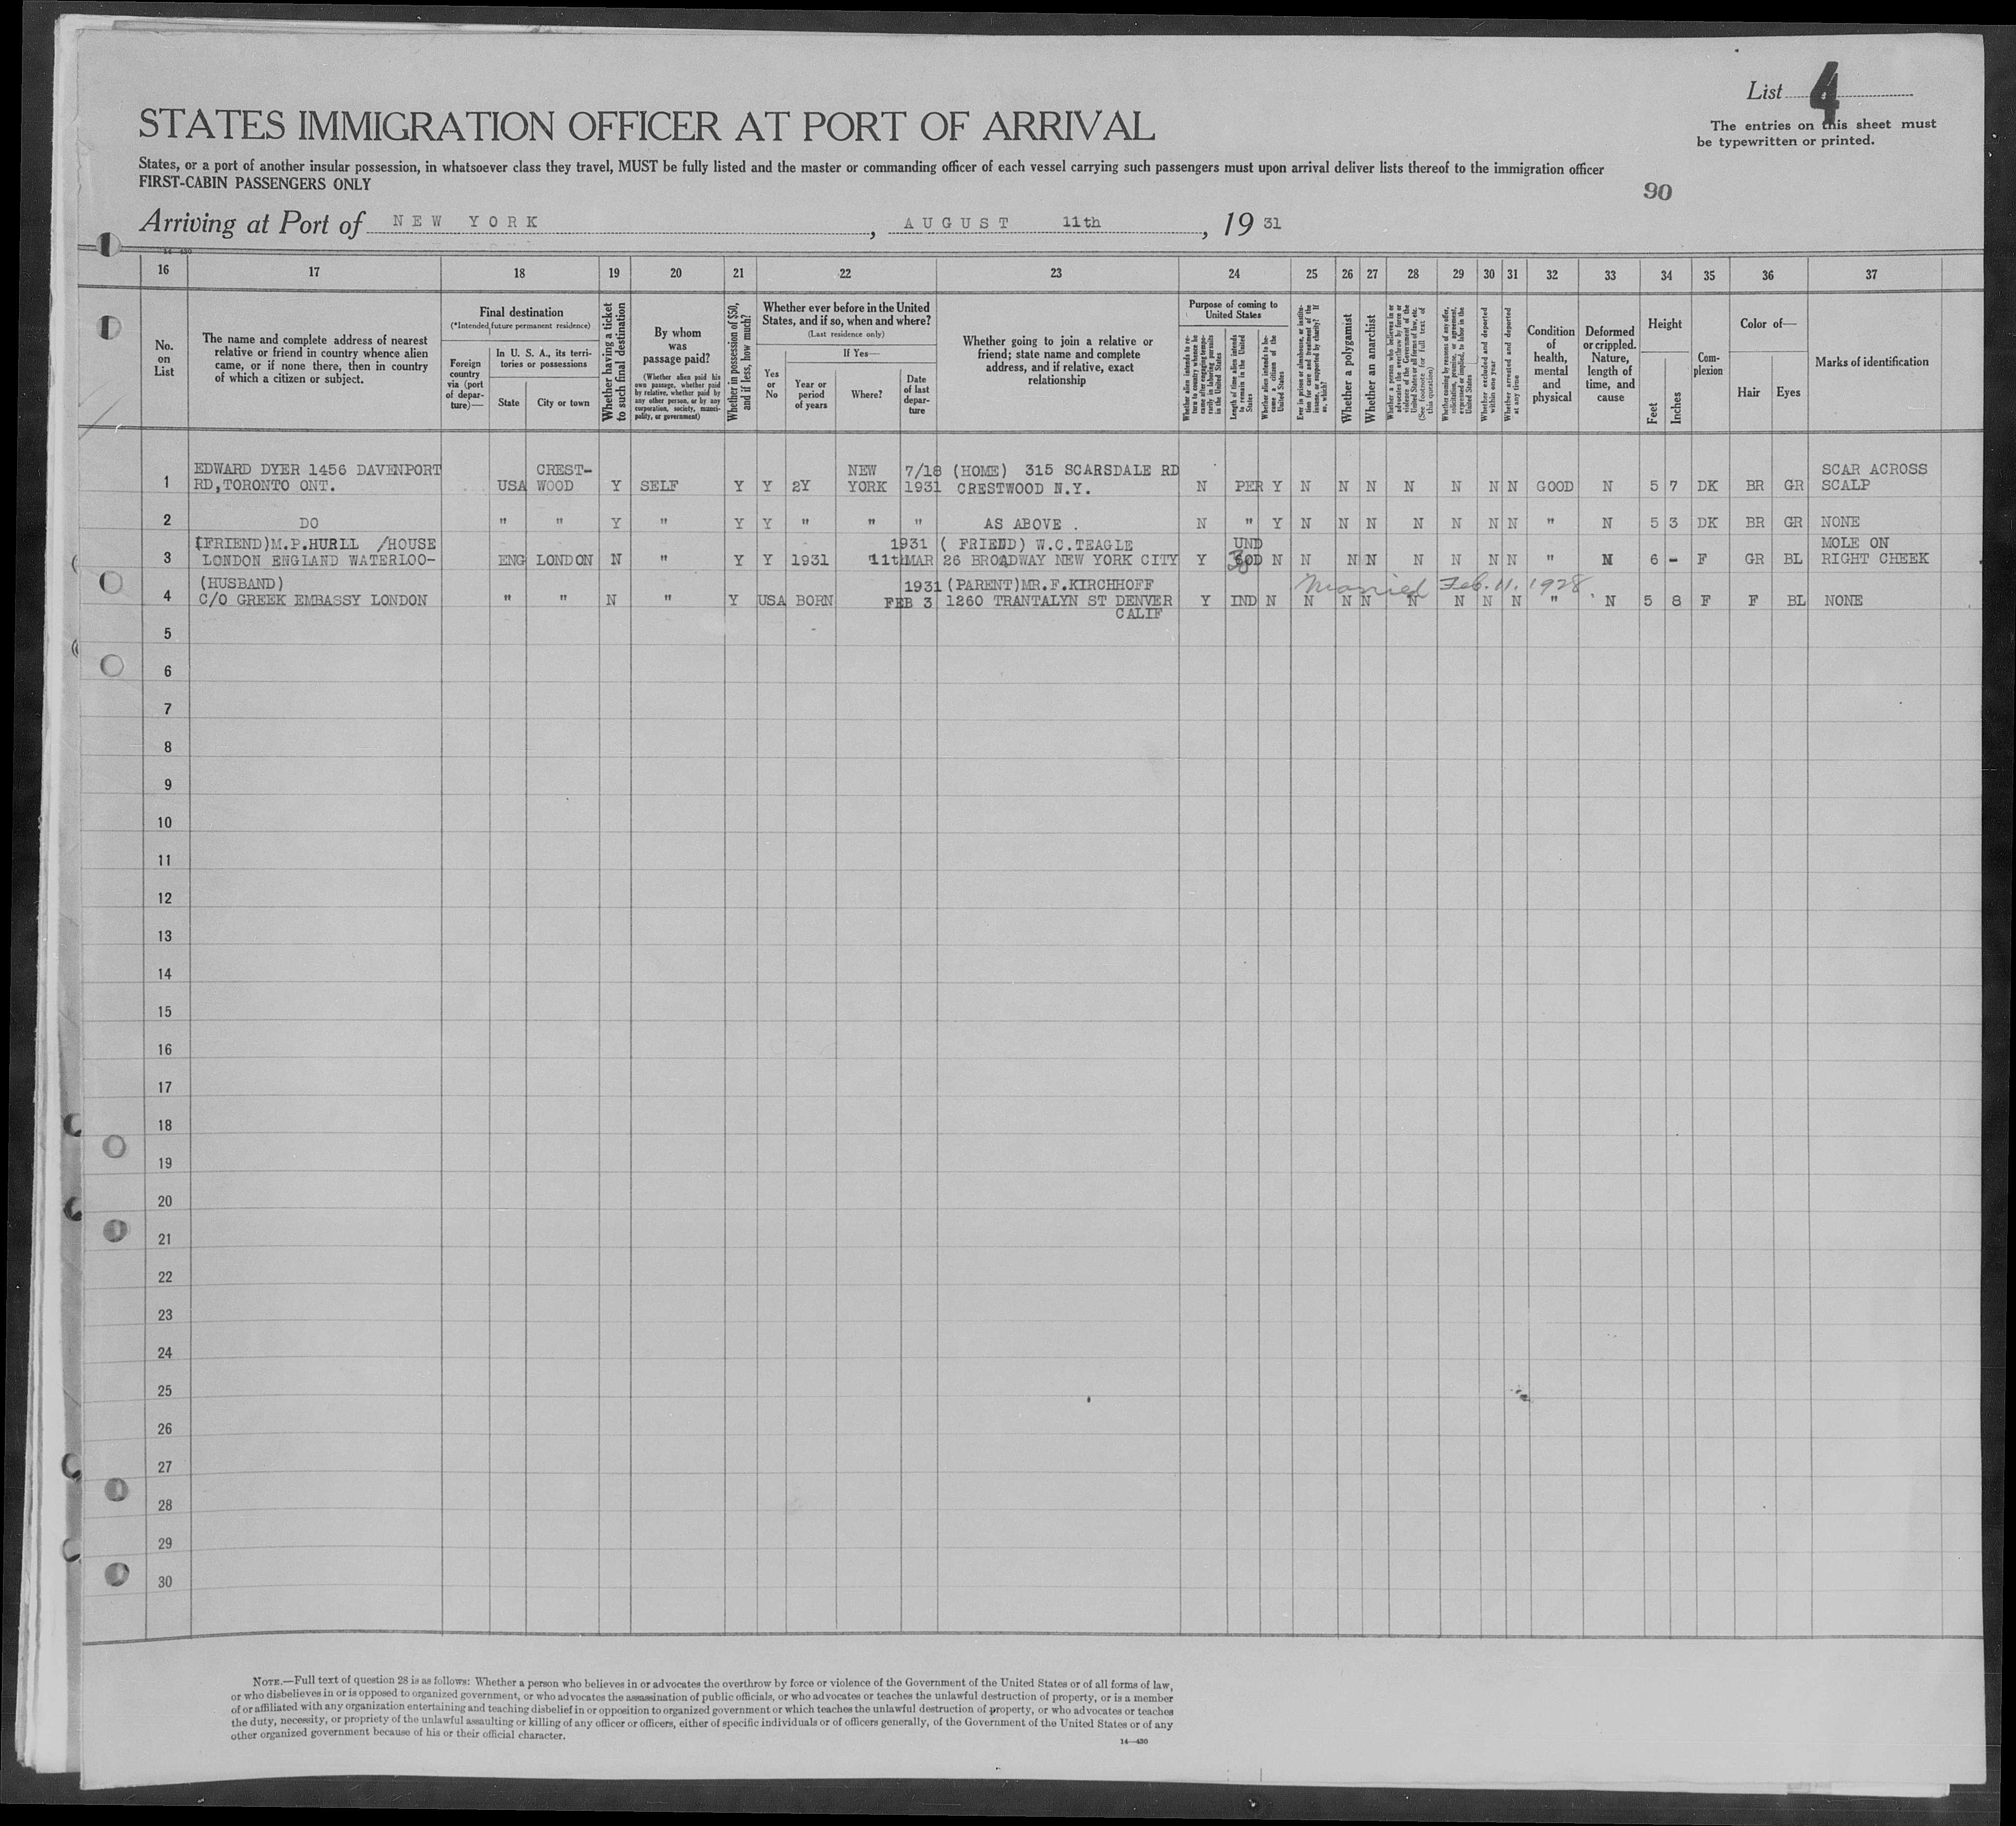 List 4
The entries on this sheet must
be typewritten or printed.
STATES IMMIGRATION OFFICER AT PORT OF ARRIVAL
States, or a port of another insular possession, in whatsoever class they travel, MUST be fully listed and the master or commanding officer of each vessel carrying such passengers must upon arrival deliver lists thereof to the immigration officer
FIRST-CABIN PASSENGERS ONLY
90
Arriving at Port of NEW YORK, AUGUST 11th, 19 31
16 17 18 19 20 21 22 23 24 25 26 27 28 29 30 31 32 33 34 35 36 37
No.
on
List
The name and complete address of nearest
relative or friend in country whence alien
came, or if none there, then in country
of which a citizen or subject.
Final destination
(*Intended future permanent residence)
Foreign
country
via (port
of depar-
ture)—
In U. S. A., its terri-
tories or possessions
State
City or town
Whether having a ticket
to such final destination
By whom
was
passage paid?
(Whether alien paid his
own passage, whether paid
by relative, whether paid by
any other person, or by any
corporation, society, munici-
pality, or government)
Whether in possession of $50,
and if less, how much?
Whether ever before in the United
States, and if so, when and where?
(Last residence only)
Yes
or
No
If Yes—
Year or
period
of years
Where?
Date
of last
depar-
ture
Whether going to join a relative or
friend; state name and complete
address, and if relative, exact
relationship
Purpose of coming to
United States
Whether alien intends to re-
turn to country whence he
came after engaging tempo-
rarily in laboring pursuits
in the United States
Length of time alien intends
to remain in the United
States
Whether alien intends to be-
come a citizen of the
United States
Ever in prison or almshouse, or institu-
tion for care and treatment of the
insane, or supported by charity? If
so, which?
Whether a polygamist
Whether an anarchist
Whether a person who believes in or
advocates the overthrow by force or
violence of the Government of the
United States or all forms of law, etc.
(See footnote for full text of
this question)
Whether coming by reason of any offer,
solicitation, promise, or agreement,
expressed or implied, to labor in the
United States
Whether excluded and deported
within one year
Whether arrested and deported
at any time
Condition
of
health,
mental
and
physical
Deformed
or crippled.
Nature,
length of
time, and
cause
Height
Feet
Inches
Com-
plexion
Color of—
Hair
Eyes
Marks of identification
EDWARD DYER 1456 DAVENPORT CREST- NEW 7/18 (HOME) 315 SCARSDALE RD SCAR ACROSS
1 RD,TORONTO ONT. USA WOOD Y SELF Y Y 2Y YORK 1931 CRESTWOOD N.Y. N PER Y N N N N N N N GOOD N 5 7 DK BR GR SCALP
2 DO " " Y " Y Y " " " AS ABOVE . N " Y N N N N N N N " N 5 3 DK BR GR NONE
(FRIEND)M.P.HURLL /HOUSE 1931 ( FRIEND) W.C.TEAGLE UND MOLE ON
3 LONDON ENGLAND WATERLOO- ENG LONDON N " Y Y 1931 11thMAR 26 BROADWAY NEW YORK CITY Y N N N N N N N N " N 6 - F GR BL RIGHT CHEEK
(HUSBAND) 1931 (PARENT)MR.F.KIRCHHOFF Married Feb. 11. 1928.
4 C/O GREEK EMBASSY LONDON " " N " Y USA BORN FEB 3 1260 TRANTALYN ST DENVER Y IND N N N N N N N N " N 5 8 F F BL NONE
CALIF
5
6
7
8
9
10
11
12
13
14
15
16
17
18
19
20
21
22
23
24
25
26
27
28
29
30
NOTE.—Full text of question 28 is as follows: Whether a person who believes in or advocates the overthrow by force or violence of the Government of the United States or of all forms of law,
or who disbelieves in or is opposed to organized government, or who advocates the assassination of public officials, or who advocates or teaches the unlawful destruction of property, or is a member
of or affiliated with any organization entertaining and teaching disbelief in or opposition to organized government or which teaches the unlawful destruction of property, or who advocates or teaches
the duty, necessity, or propriety of the unlawful assaulting or killing of any officer or officers, either of specific individuals or of officers generally, of the Government of the United States or of any
other organized government because of his or their official character.
14—430